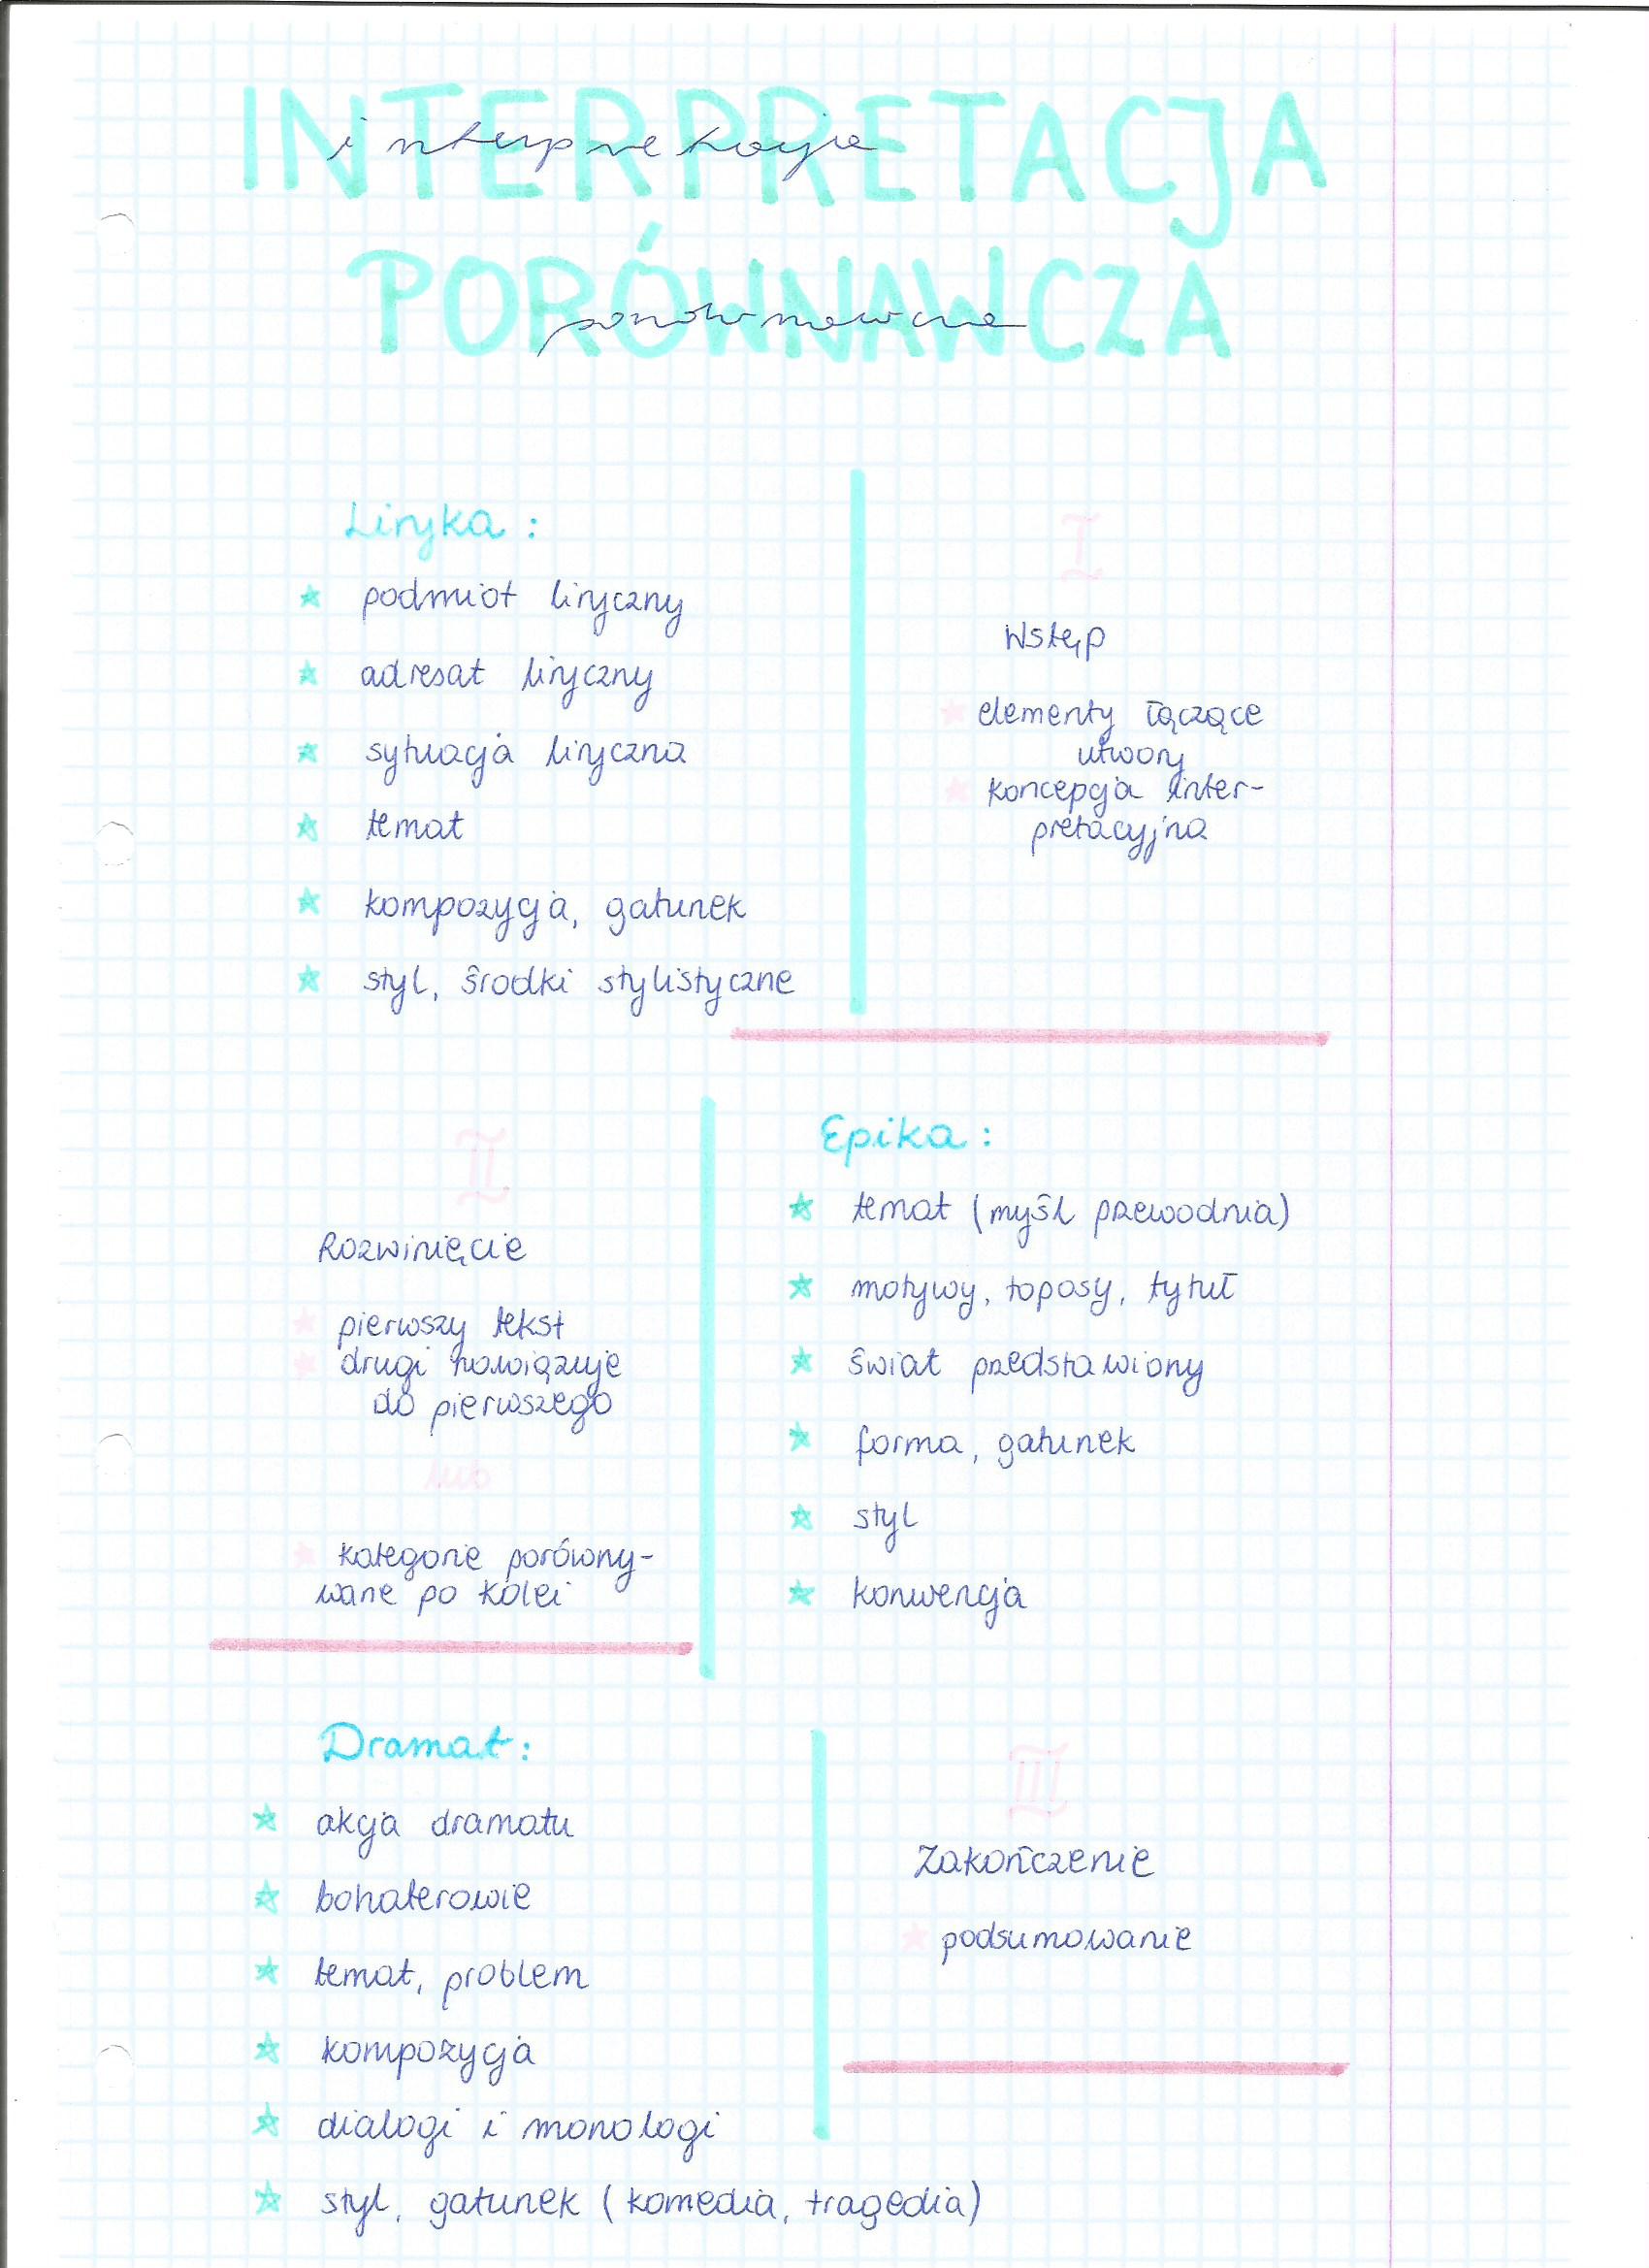 INTERPRETACJA
interpretacja
PORÓWNAWCZA
porównawcza
Liryka:
podmiot liryczny
adresat liryczny
sytuacja liryczna
temat
kompozycja, gatunek
styl, środki stylistyczne
I
Wstęp
elementy łączące
utwory
koncepcja inter-
pretacyjna
II
Rozwinięcie
pierwszy tekst
drugi nawiązuje
do pierwszego
lub
kategorie porówny-
wane po kolei
Epika:
temat (myśl przewodnia)
motywy, toposy, tytuł
świat przedstawiony
forma, gatunek
styl
konwencja
Dramat:
akcja dramatu
bohaterowie
temat, problem
kompozycja
dialogi i monologi
styl, gatunek (komedia, tragedia)
III
Zakończenie
podsumowanie